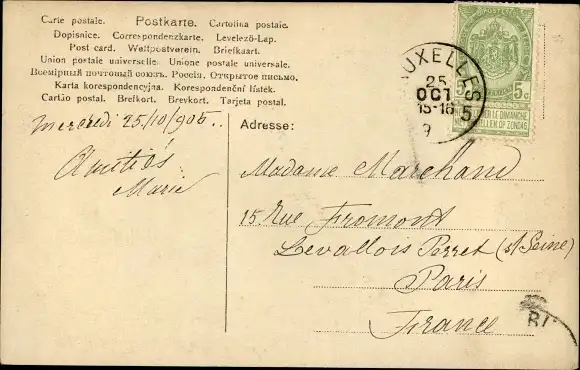 Carte postale. Postkarte. Cartolina postale.
Dopisnice. Correspondenzkarte. Levelező-Lap.
Post card. Weltpostverein. Briefkaart.
Union postale universelle. Unione postale universale.
Всемірный почтовый союзъ. Россія. Открытое письмо.
Karta korespondencyjna. Korespondenční lístek.
Cartão postal. Brefkort. Brevkort. Tarjeta postal.
UXELLES 5
25
OCT
15-16
9
5c 5c
ER LE DIMANCHE
ELLEN OP ZONDAG
Mercredi 25/10/905..
Amitiés
Marie
Adresse:
Madame Marchand
15. Rue Fromont
Levallois Perret (s/Seine)
Paris
France